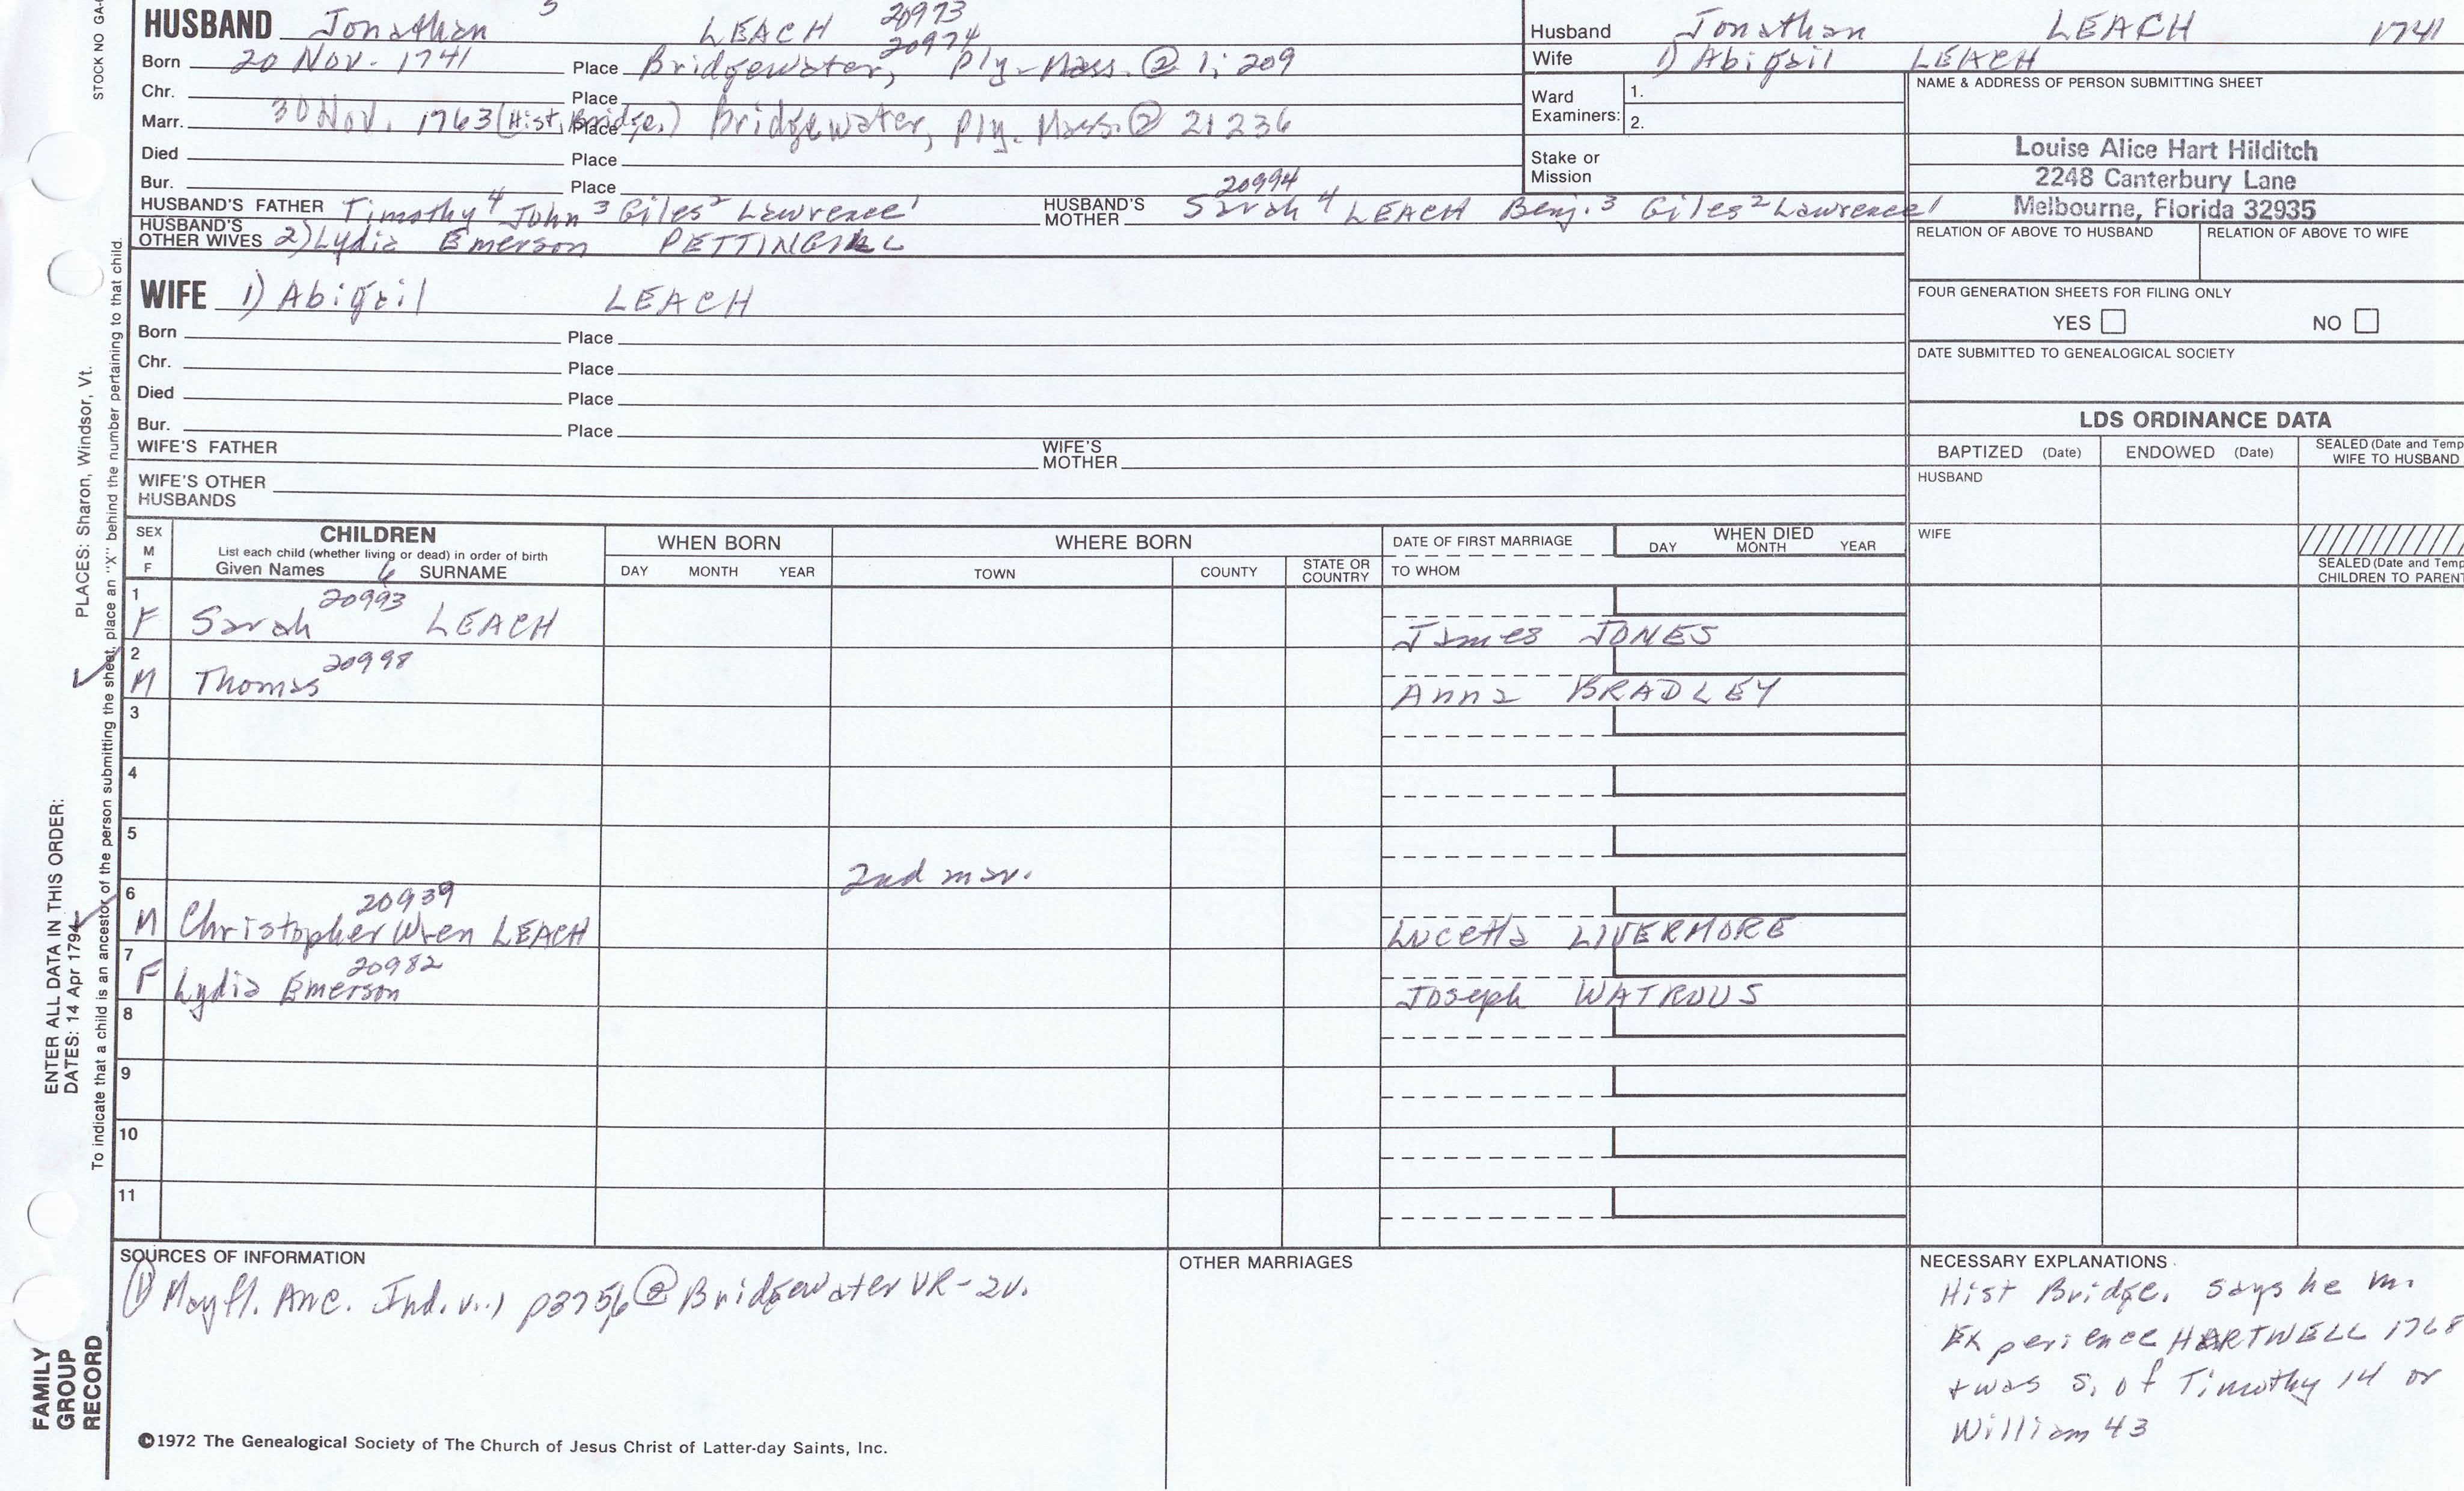 STOCK NO GA-
HUSBAND Jonathan 5 LEACH 20973
20974
Born 20 Nov. 1741 Place Bridgewater, Ply-Mass. @ 1; 209
Chr. Place
Marr. 30 Nov. 1763 (Hist. Bridge.) Place Bridgewater, Ply. Mass. @ 2; 236
Died Place
Bur. Place
HUSBAND'S FATHER Timothy 4 John 3 Giles 2 Lawrence 1 HUSBAND'S MOTHER 20994 Sarah 4 LEACH Benj. 3 Giles 2 Lawrence 1
HUSBAND'S OTHER WIVES 2) Lydia Emerson PETTINGILL
WIFE 1) Abigail LEACH
Born Place
Chr. Place
Died Place
Bur. Place
WIFE'S FATHER WIFE'S MOTHER
WIFE'S OTHER HUSBANDS
Husband Jonathan LEACH 1741
Wife 1) Abigail LEACH
Ward Examiners: 1.
2.
Stake or Mission
NAME & ADDRESS OF PERSON SUBMITTING SHEET
Louise Alice Hart Hilditch
2248 Canterbury Lane
Melbourne, Florida 32935
RELATION OF ABOVE TO HUSBAND RELATION OF ABOVE TO WIFE
FOUR GENERATION SHEETS FOR FILING ONLY
YES NO
DATE SUBMITTED TO GENEALOGICAL SOCIETY
LDS ORDINANCE DATA
BAPTIZED (Date) ENDOWED (Date) SEALED (Date and Temp
WIFE TO HUSBAND
HUSBAND
WIFE
SEALED (Date and Temp
CHILDREN TO PARENT
SEX M F CHILDREN WHEN BORN WHERE BORN DATE OF FIRST MARRIAGE WHEN DIED
List each child (whether living or dead) in order of birth
Given Names 6 SURNAME DAY MONTH YEAR TOWN COUNTY STATE OR COUNTRY TO WHOM DAY MONTH YEAR
1 F Sarah 20993 LEACH James JONES
2 M Thomas 20998 Anna BRADLEY
3
4
5 2nd mar.
6 M Christopher Wren LEACH 20939 Lucetta LIVERMORE
7 F Lydia Emerson 20982 Joseph WATROUS
8
9
10
11
SOURCES OF INFORMATION
1) Mayfl. Anc. Ind. p3756 @ Bridgewater VR-2v.
OTHER MARRIAGES
NECESSARY EXPLANATIONS
Hist Bridge. says he m.
Experience HARTWELL 1768
+ was s. of Timothy 14 or
William 43
©1972 The Genealogical Society of The Church of Jesus Christ of Latter-day Saints, Inc.
FAMILY
GROUP
RECORD
ENTER ALL DATA IN THIS ORDER:
DATES: 14 Apr 1794
PLACES: Sharon, Windsor, Vt.
To indicate that a child is an ancestor of the person submitting the sheet, place an "X" behind the number pertaining to that child.